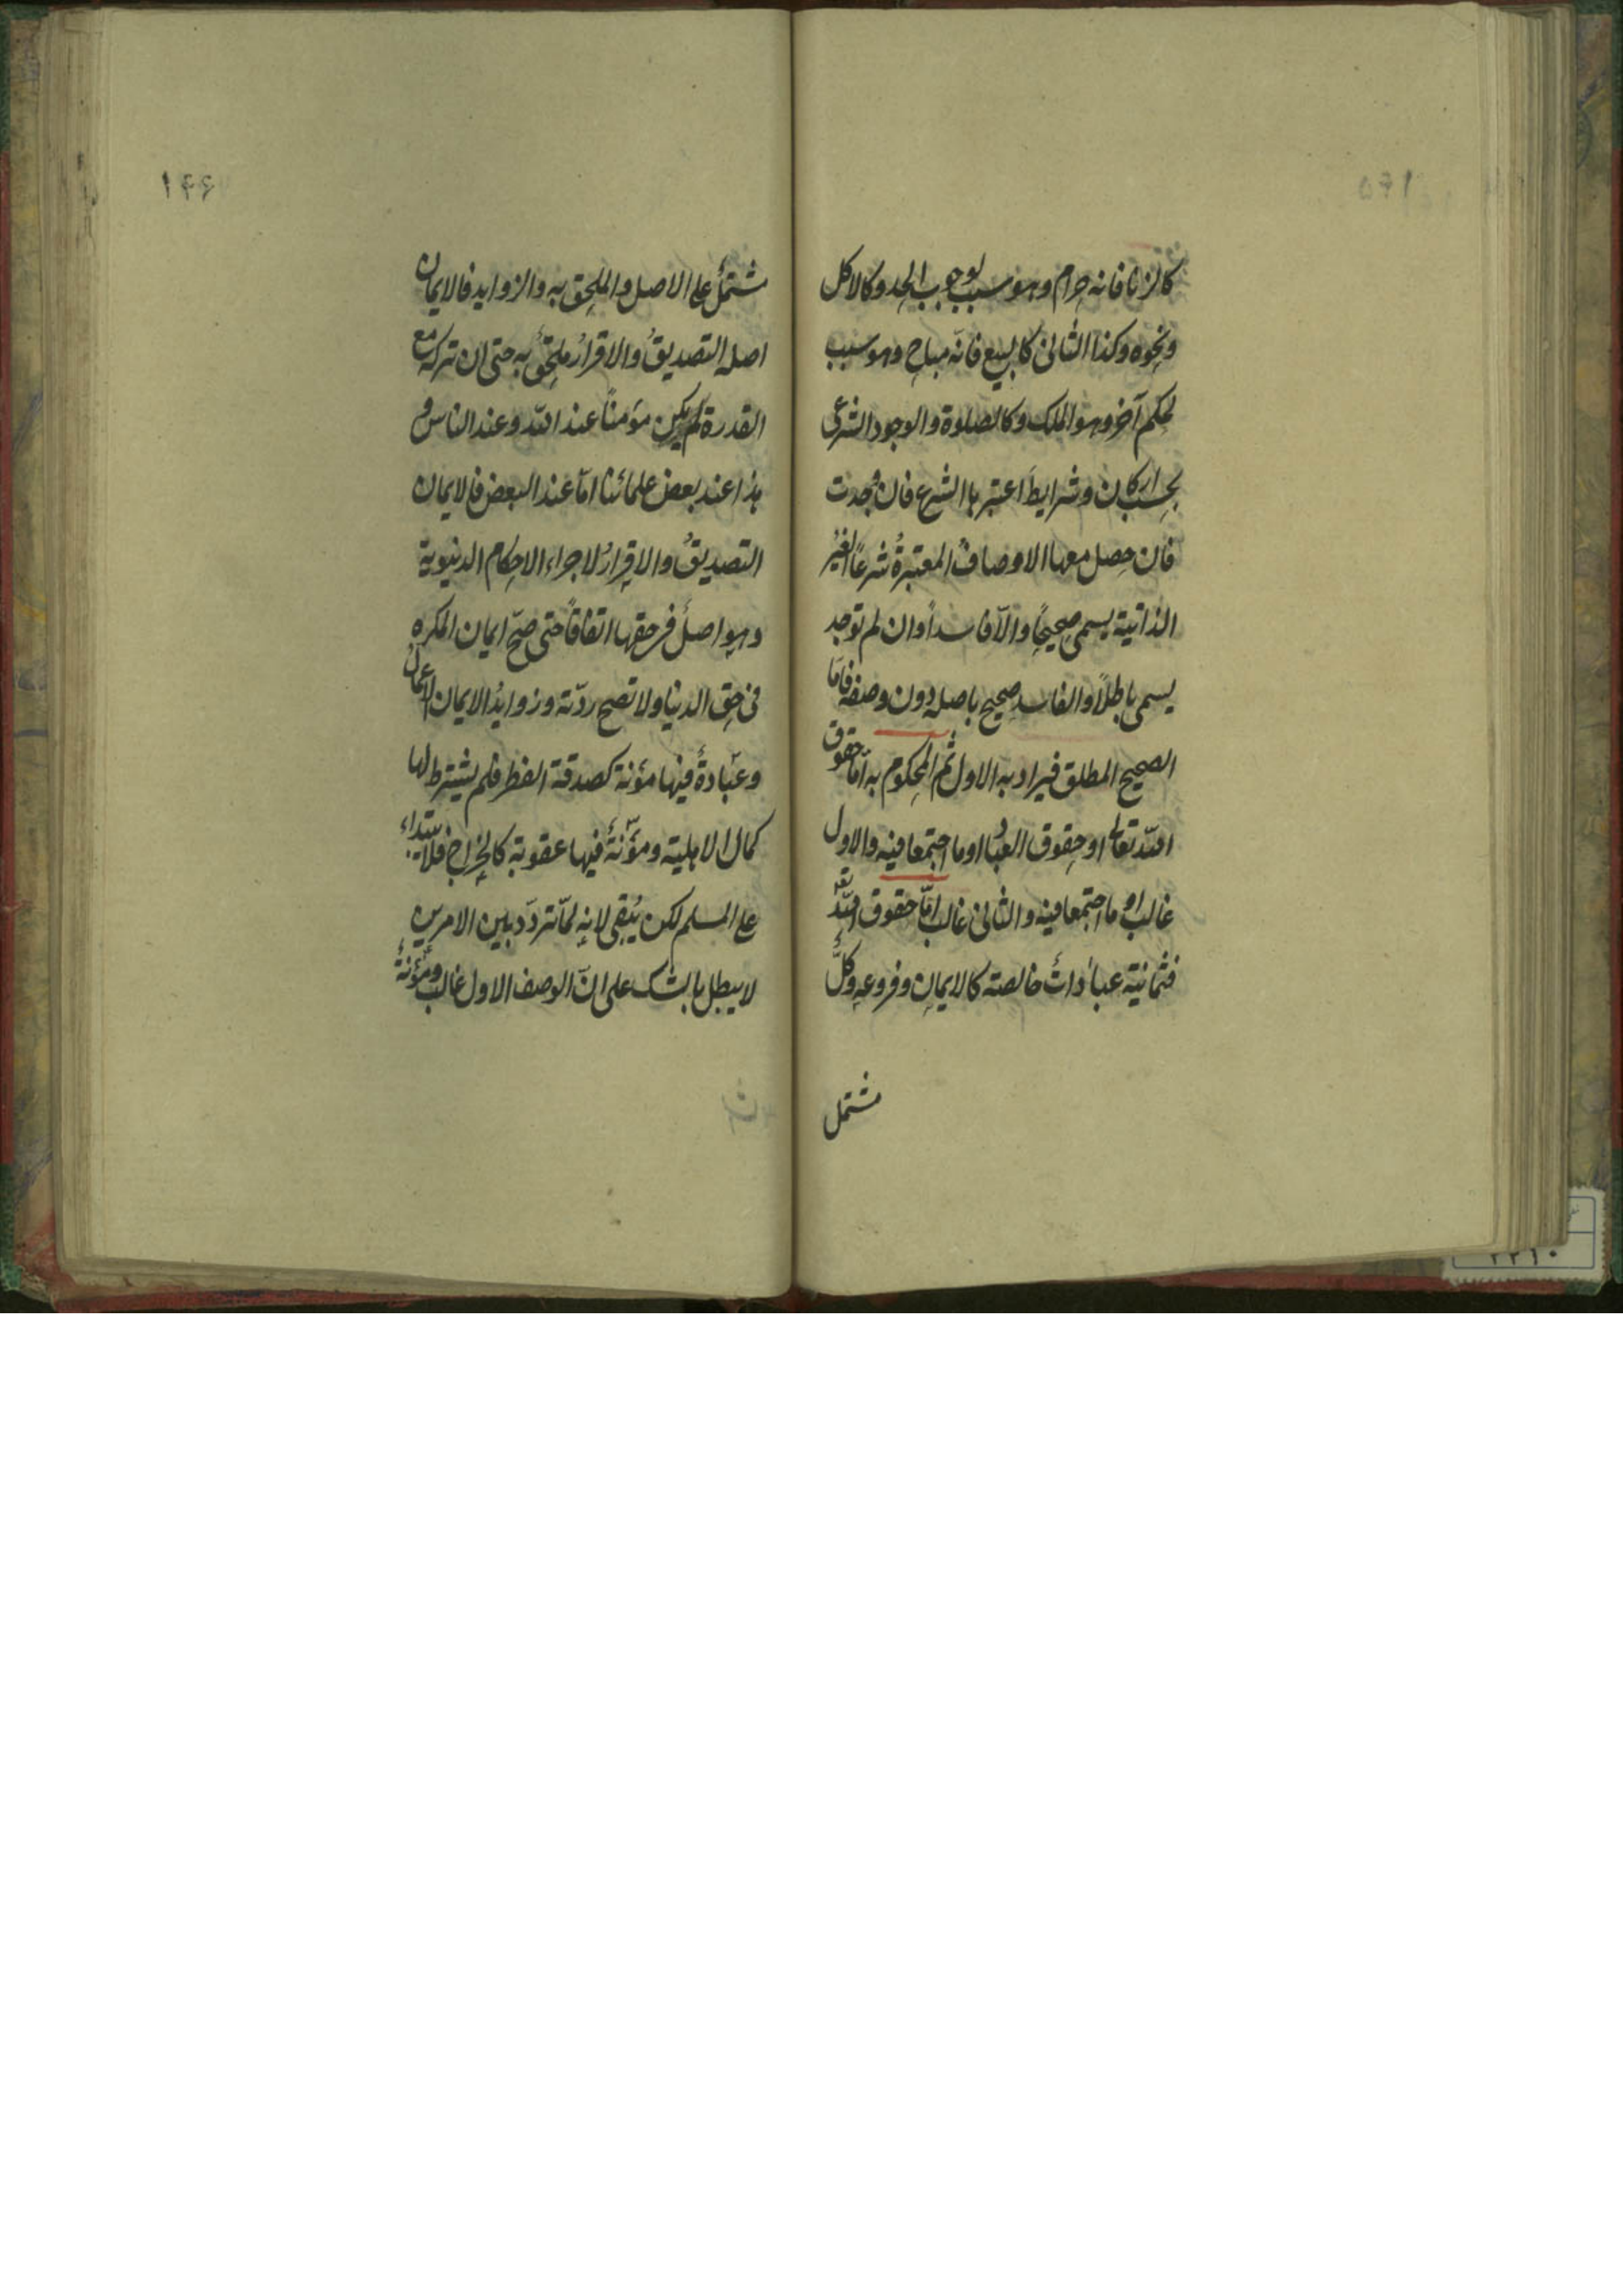 كالزنا فانه حرام وهو سبب لوجوب الحد وكالاكل
ونحوه وكذا الثانى كالبيع فانّه مباح وهو سبب
لحكم آخر وهو الملك وكالصلوة والوجود الشرعى
بحسب اركان وشرايط اعتبرها الشرع فان وجدت
فان حصل معها الاوصافُ المعتبرةُ شرعاً الغيرُ
الذاتية يسمى صحيحاً والاّ فاسداً وان لم توجد
يسمى باطلاً والفاسد صحيح باصله دون وصفه فامّا
الصحيح المطلق فيراد به الاول ثم المحكوم به امّا حقوق
اللّه تعالى او حقوق العباد او ما اجتمعا فيه والاول
غالب او ما اجتمعا فيه والثانى غالب امّا حقوق اللّه تعه
فثمانية عباداتٌ خالصته كالايمانِ وفروعهِ وكلٌّ
مشتمل
١٦٦
مشتملٌ على الاصل والملحق به والزوايد فالايمان
اصله التصديقُ والاقرارُ ملحقٌ به حتى ان تركه مع
القدرة لم يكن مؤمناً عند اللّه وعند الناس و
هذا عند بعض علمائنا امّا عند البعض فالايمان
التصديقُ والاقرارُ لاجراء الاحكام الدنيوية
وهو اصلٌ فى حقها اتفاقاً حتى صحّ ايمان المكره
فى حق الدنيا ولا تصح ردّته وزوايدُ الايمان الاعمالُ
وعبادةٌ فيها مؤنة كصدقة الفطر فلم يشترط لها
كمال الاهلية ومؤنةٌ فيها عقوبة كالخراج فلا يبتداء
على المسلم لكن يبقى لانه لمّا تردّد بين الامرين
لا يبطل بالشك على انّ الوصف الاول غالب ومؤنةٌ